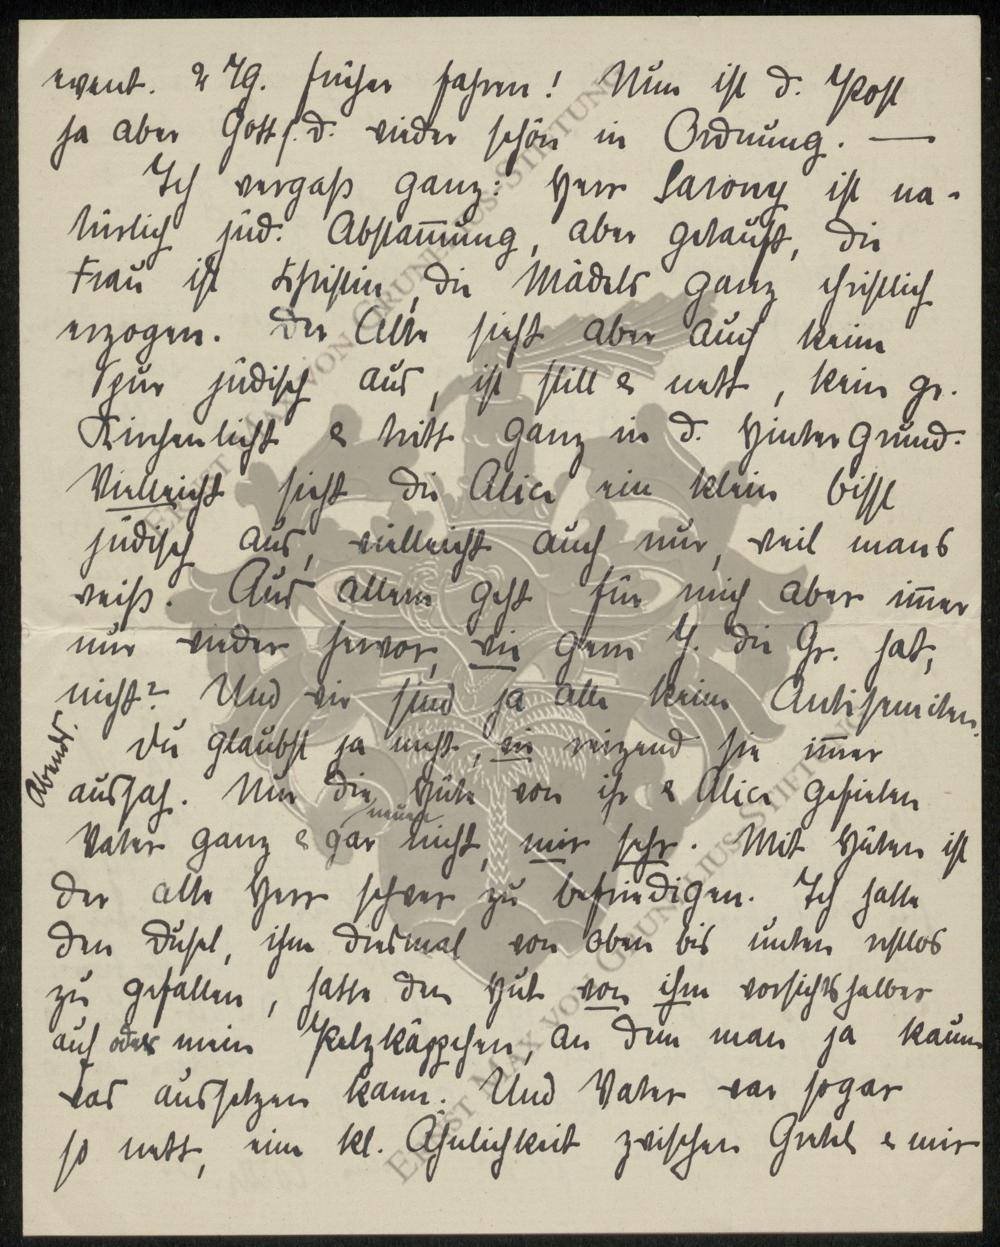 event. 2 Tg. früher fahren! Nun ist d. Post
ja aber Gott s. d. wieder schön in Ordnung. —
Ich vergaß ganz: Herr Sarony ist na-
türlich jüd. Abstam̅ung, aber getauft, die
Frau ist Christin, die Mädels ganz christlich
erzogen. Der Alte sieht aber auch keine
Spur jüdisch aus, ist still & nett, kein gr.
Kirchenlicht & tritt ganz in d. Hintergrund.
Vielleicht sieht die Alice ein klein bissl
jüdisch aus, vielleicht auch nur, weil mans
weiß. Aus allem geht für mich aber im̅er
nur wieder hervor, wie gern H. die Gr. hat,
nicht? Und wir sind ja alle keine Antisemiten.
Abends.
Du glaubst ja nicht, wie reizend sie im̅er
aussah. Nur die neuen Hüte von ihr & Alice gefielen
Vater ganz & gar nicht, mir sehr. Mit Hüten ist
der alte Herr schwer zu befriedigen. Ich hatte
den Dusel, ihm diesmal von oben bis unten restlos
zu gefallen, hatte den Hut von ihm vorsichtshalber
auf oder mein Pelzkäppchen, an dem man ja kaum
was aussetzen kann. Und Vater war sogar
so nett, eine kl. Ähnlichkeit zwischen Gretel & mir
ERNST MAX VON GRUNELIUS-STIFTUNG
ERNST MAX VON GRUNELIUS-STIFTUNG